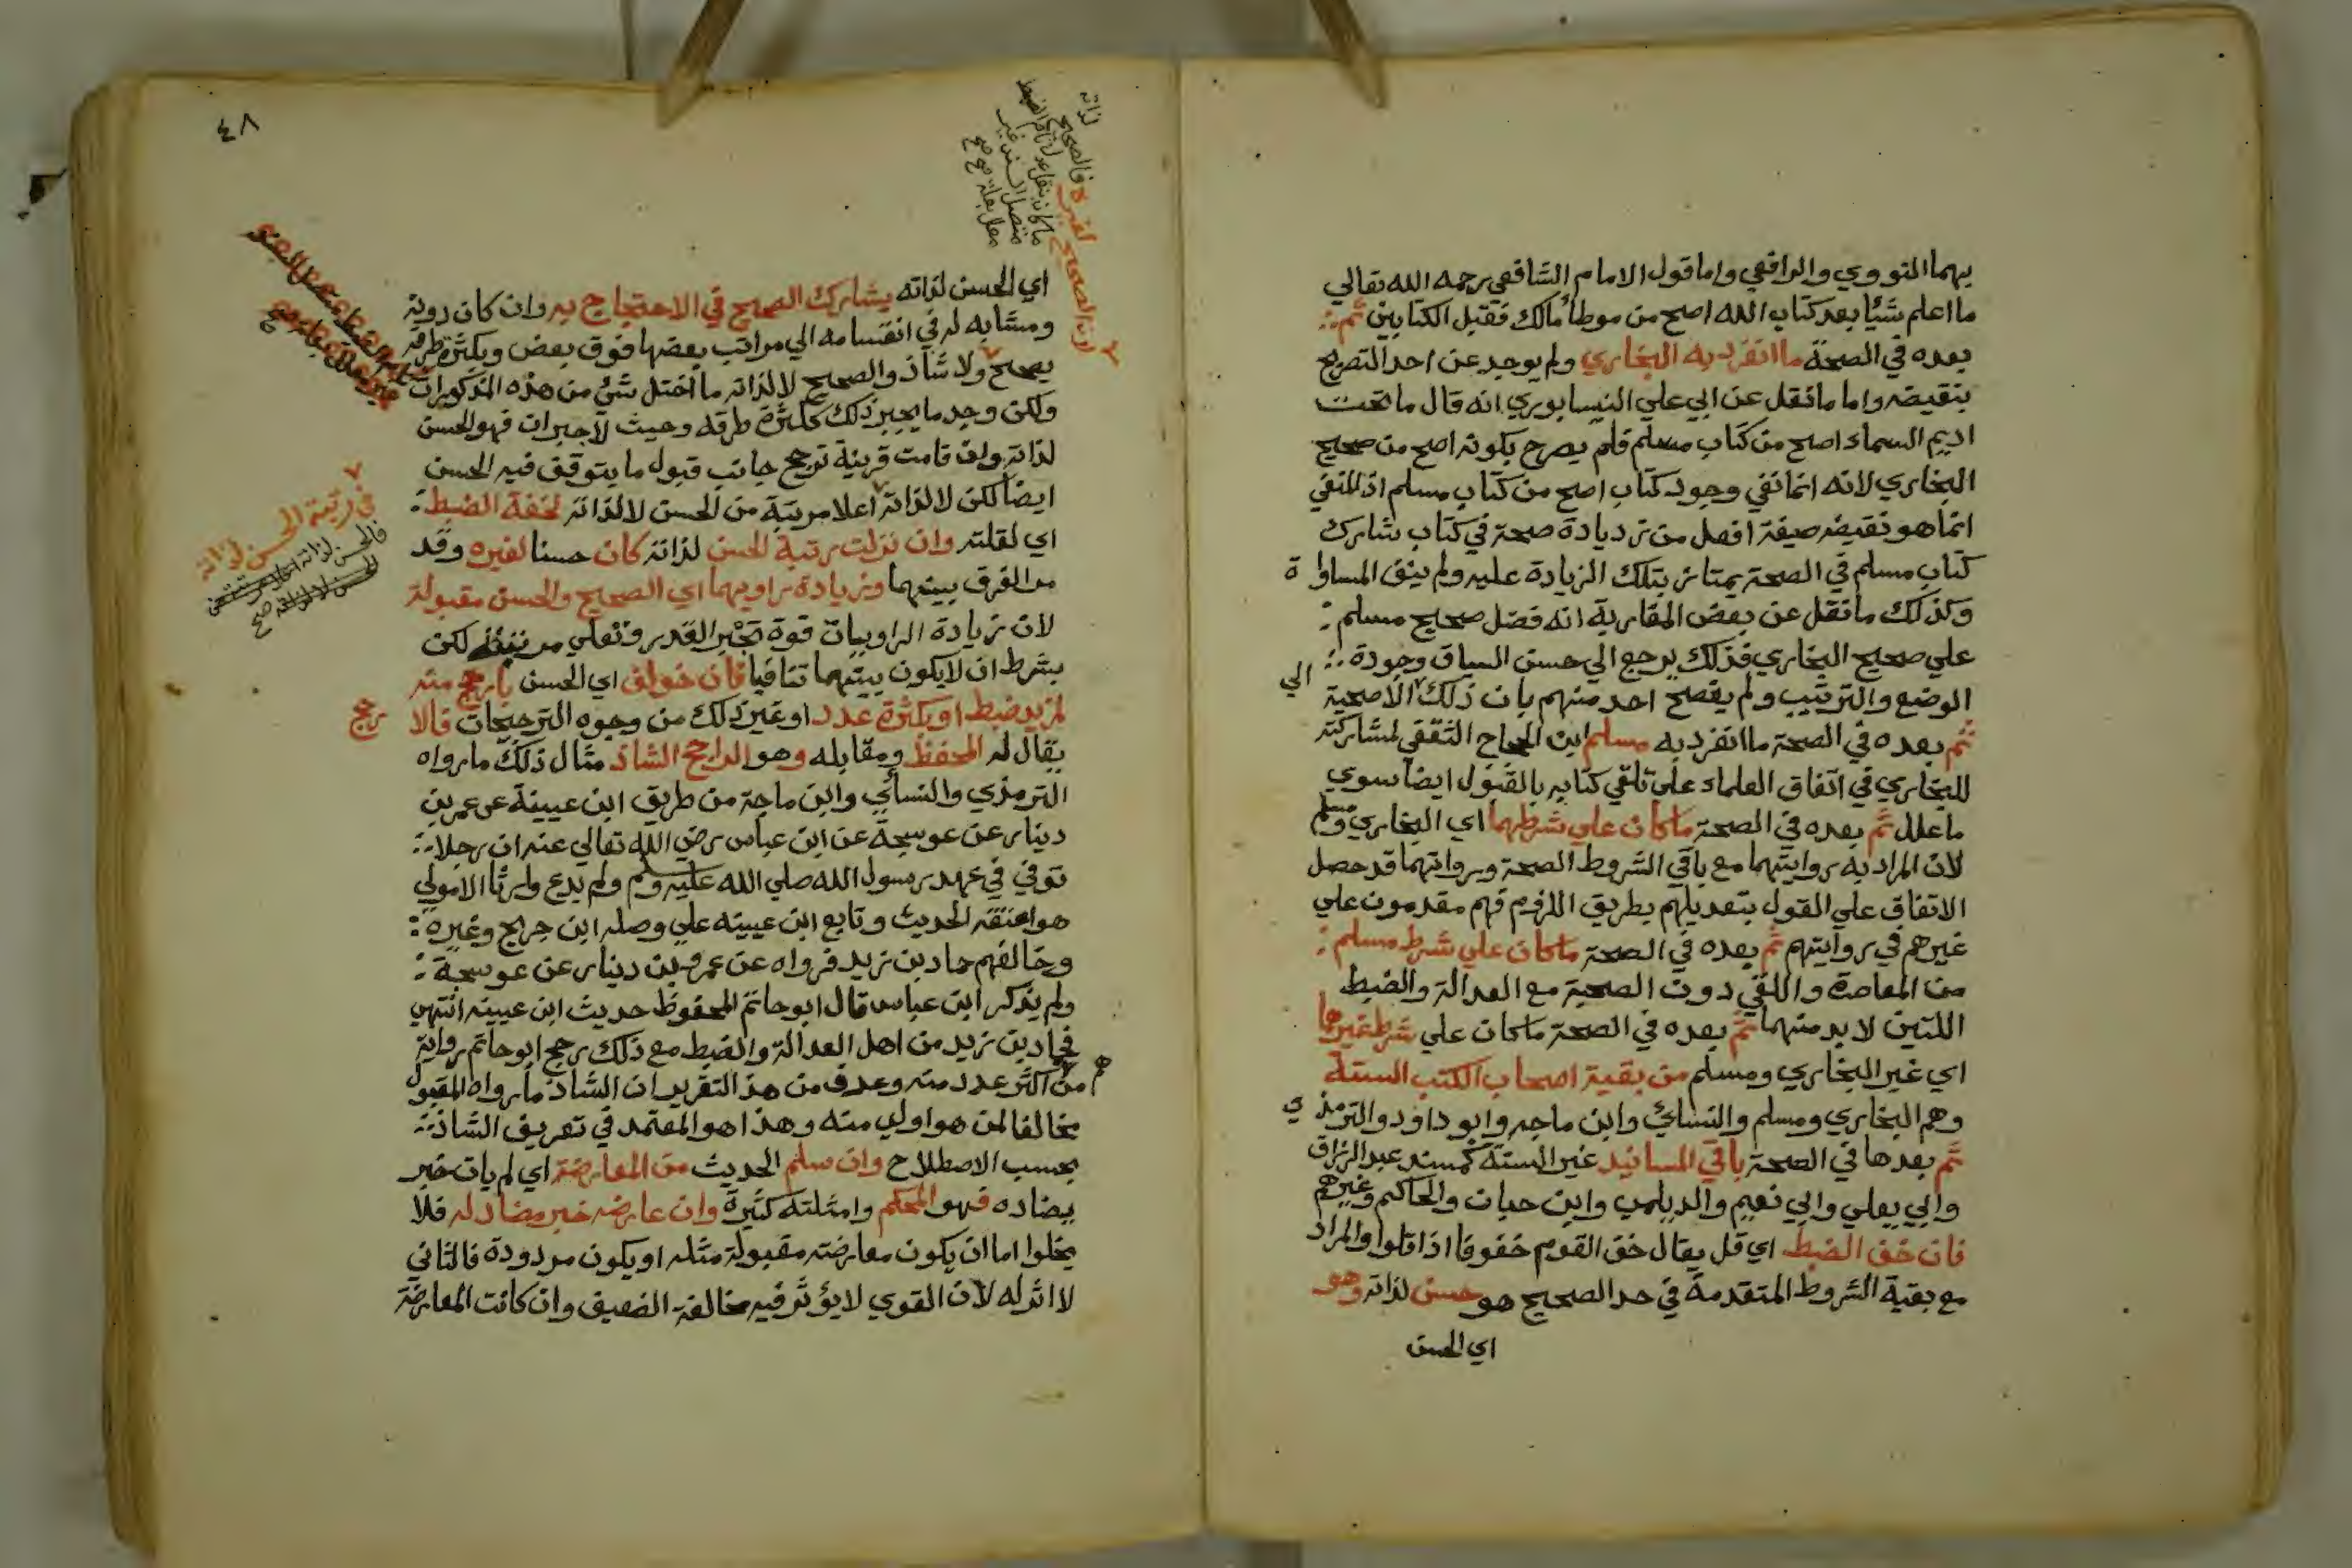 بهما النووي والرافعي واما قول الامام الشافعي رحمه الله تعالي
ما اعلم شيًا بعد كتاب الله اصح من موطأ مالك فقبل الكتابين ثم
بعده في الصحة ما انفرد به البخاري ولم يوجد عن احد التصريح
بنقيضه واما ما نقل عن ابي علي النيسابوري انه قال ما تحت
اديم السماء اصح من كتاب مسلم فلم يصرح بكونه اصح من صحيح
البخاري لانه انما نفي وجود كتاب اصح من كتاب مسلم اذ المنفي
انما هو نقيضه صيغة افعل من زيادة صحة في كتاب شارك
كتاب مسلم في الصحة يمتاز بتلك الزيادة عليه ولم ينق المساواة
وكذلك ما نقل عن بعض المغاربة انه فضل صحيح مسلم
علي صحيح البخاري فذلك يرجع الي حسن السياق وجودة
الوضع والترتيب ولم يفصح احد منهم بان ذلك الي الاصحية
ثم بعده في الصحة ما انفرد به مسلم ابن الحجاج الثقفي لمشاركته
للبخاري في اتفاق العلماء علي تلقي كتابه بالقبول ايضا سوي
ما علل ثم بعده في الصحة ما كان علي شرطهما اي البخاري ومسلم
لان المراد به روايتهما مع باقي الشروط الصحة ورواتهما قد حصل
الاتفاق علي القول بتعديلهم بطريق اللزوم فهم مقدمون علي
غيرهم في روايتهم ثم بعده في الصحة ما كان علي شرط مسلم
من المعاصرة واللقي دون الصحبة مع العدالة والضبط
اللتين لا بد منهما ثم بعده في الصحة ما كان علي شرط غيرهما
اي غير البخاري ومسلم من بقية اصحاب الكتب الستة
وهم البخاري ومسلم والنسائي وابن ماجه وابو داود والترمذي
ثم بعدها في الصحة باقي المسانيد غير الستة كمسند عبد الرزاق
وابي يعلي وابي نعيم والديلمي وابن حبان والحاكم وغيرهم
فان خف الضبط اي قل يقال خف القوم خفوفا اذا قلوا والمراد
مع بقية الشروط المتقدمة في حد الصحيح هو حسن لذاته وهو
اي الحسن
٤٨
اي الحسن لذاته يشارك الصحيح في الاحتجاج به وان كان دونه
ومشابه له في انقسامه الي مراتب بعضها فوق بعض وبكثرة طرقه
يصحح ولا شاذ والصحيح لا لذاته ما اختل شئ من هذه المذكورات
ولكن وجد ما يجبر ذلك ككثرة طرقه وحيث لا جبران فهو الحسن
لذاته وان قامت قرينة ترجح جانب قبول ما يتوقف فيه الحسن
ايضا لكن لا لذاته اعلا مرتبة من الحسن لا لذاته لخفة الضبط
اي لقلته وان نزلت رتبة الحسن لذاته كان حسنا لغيره وقد
مر الفرق بينهما وزيادة راويهما اي الصحيح والحسن مقبولة
لان زيادة الراويات قوة تجبر القدر وتعلي من لكن
بشرط ان لا يكون بينهما تنافيا فان خولف اي الحسن بارجح منه
لمزيد ضبط او بكثرة عدد او غير ذلك من وجوه الترجيحات فالا رجح
يقال له المحفظ ومقابله وهو الراجح الشاذ مثال ذلك ما رواه
الترمذي والنسائي وابن ماجة من طريق ابن عيينة عن عمر بن
دينار عن عوسجة عن ابن عباس رضي الله تعالي عنه ان رجلا
توفي في عهد رسول الله صلي الله عليه وسلم ولم يدع وارثا الا مولي
هو اعتقه الحديث وتابع ابن عيينه علي وصله ابن جريج وغيره
وخالفهم حماد بن زيد فرواه عن عمرو بن دينار عن عوسجة
ولم يذكر ابن عباس قال ابو حاتم المحفوظ حديث ابن عيينه انتهي
فحماد بن زيد من اهل العدالة والضبط مع ذلك رجح ابو حاتم رواية
من هم اكثر عدد منه وعرف من هذا التقرير ان الشاذ ما رواه المقبول
مخالفا لمن هو اولي منه وهذا هو المعتمد في تعريف الشاذ
بحسب الاصطلاح وان سلم الحديث من المعارضة اي لم يات خبر
يضاده فهو المحكم وامثلته كثيرة وان عارضه خبر مضاد له فلا
يخلوا اما ان يكون معارضته مقبولة مثله او يكون مردودة فالثاني
لا اثر له لان القوي لا يؤثر فيه مخالفة الضعيف وان كانت المعارضة
لذاته
لغيره فالصحيح
ما كان بنقل عدل تام الضبط
متصل السند غير
معلل بعلة صح
في رتبة الحسن لذاته
فالحسن لذاته
صح